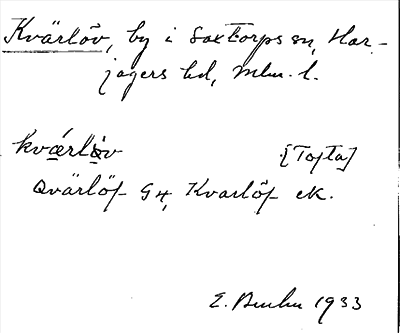 Kvärlöv, by i Saxtorps sn, Har-
jagers hd, Mlm. l.
kvǽrløv [Tofta]
Qvärlöf GH, Kvarlöf eK.
E. 1933